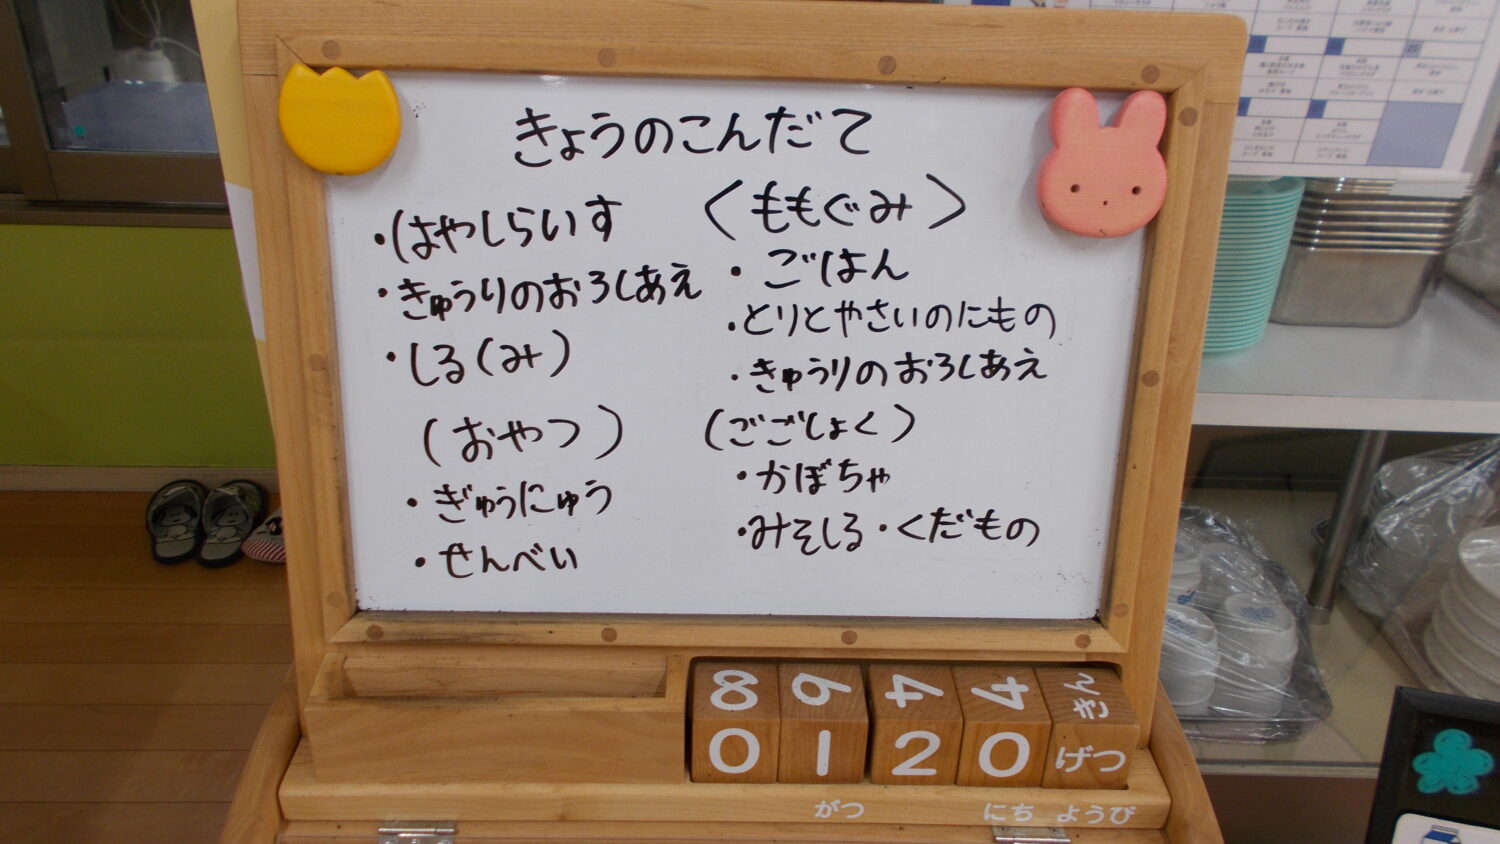 きょうのこんだて
・はやしらいす
・きゅうりのおろしあえ
・しる(み)
(おやつ)
・ぎゅうにゅう
・せんべい
〈ももぐみ〉
・ごはん
・とりとやさいのにもの
・きゅうりのおろしあえ
(ごごしょく)
・かぼちゃ
・みそしる・くだもの
8 6 4 4 きん
0 1 2 0 げつ
がつ にち ようび